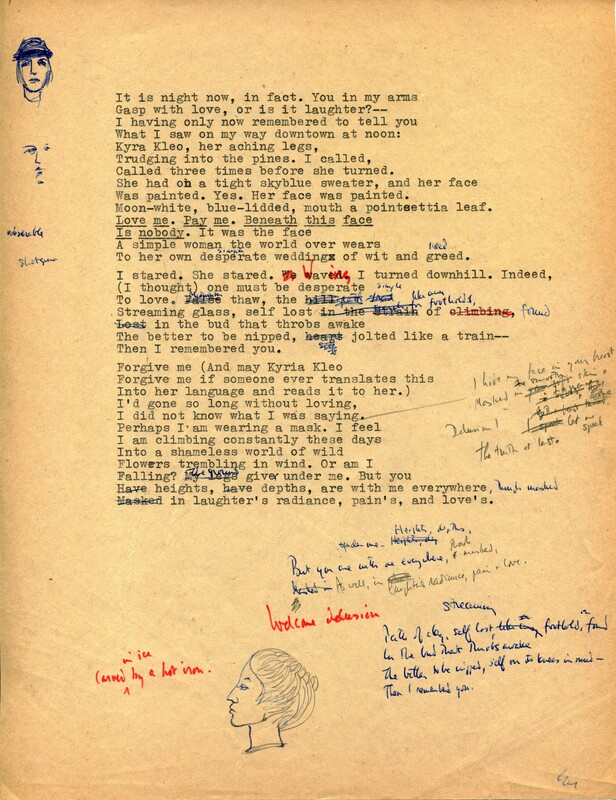 It is night now, in fact. You in my arms
Gasp with love, or is it laughter?--
I having only now remembered to tell you
What I saw on my way downtown at noon:
Kyra Kleo, her aching legs,
Trudging into the pines. I called,
Called three times before she turned.
She had on a tight skyblue sweater, and her face
Was painted. Yes. Her face was painted.
Moon-white, blue-lidded, mouth a pointsettia leaf.
Love me. Pay me. Beneath this face
Is nobody. It was the face
A simple woman the world over wears
simple need
To her own desperate weddings of wit and greed.
I stared. She stared. Waving, I turned downhill. Indeed,
(I thought) one must be desperate simple
To love. thaw, the like any footholds,
Streaming glass, self lost in the strain of climbing, found
Lost in the bud that throbs awake
The better to be nipped, heart jolted like a train--
self
Then I remembered you.
Forgive me (And may Kyria Kleo
Forgive me if someone ever translates this
Into her language and reads it to her.)
I'd gone so long without loving,
I did not know what I was saying.
Perhaps I am wearing a mask. I feel
I am climbing constantly these days
Into a shameless world of wild
Flowers trembling in wind. Or am I
the ground
Falling? My legs give under me. But you
Have heights, have depths, are with me everywhere, though masked
Masked in laughter's radiance, pain's, and love's.
resemble
I hide my face in your heart
Masked in smooth skin.
Delusion! let me speak
the truth at last.
Heights, depths,
under me. Heights,
But you are with me everywhere, masked,
Masked in As well, in laughter's radiance, pain + love.
Welcome delusion
in ice
Carved by a hot iron.
streaming
Path of clay, self lost, like any foothold, found
In the bud that throbs awake
The better to be nipped, self on its knees in mud—
Then I remembered you.